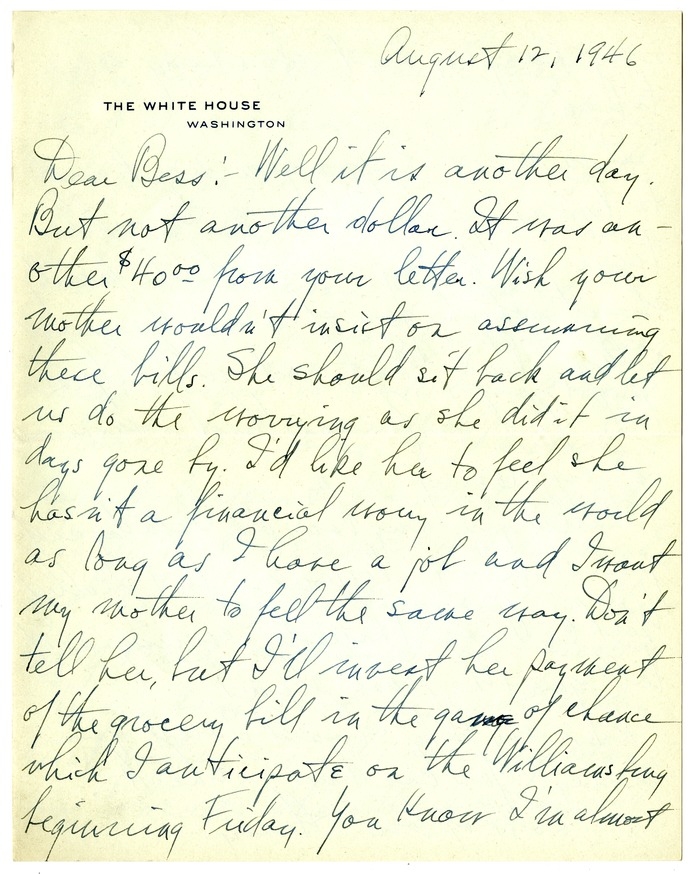 August 12, 1946
THE WHITE HOUSE
WASHINGTON
Dear Bess:- Well it is another day.
But not another dollar. It was an-
other $40 00 from your letter. Wish your
mother wouldn't insist on assuming
these bills. She should sit back and let
us do the worrying as she did it in
days gone by. I'd like her to feel she
hasn't a financial worry in the world
as long as I have a job and I want
my mother to feel the same way. Don't
tell her, but I'll invest her payment
of the grocery bill in the game of chance
which I anticipate on the Williamsburg
beginning Friday. You know I'm almost